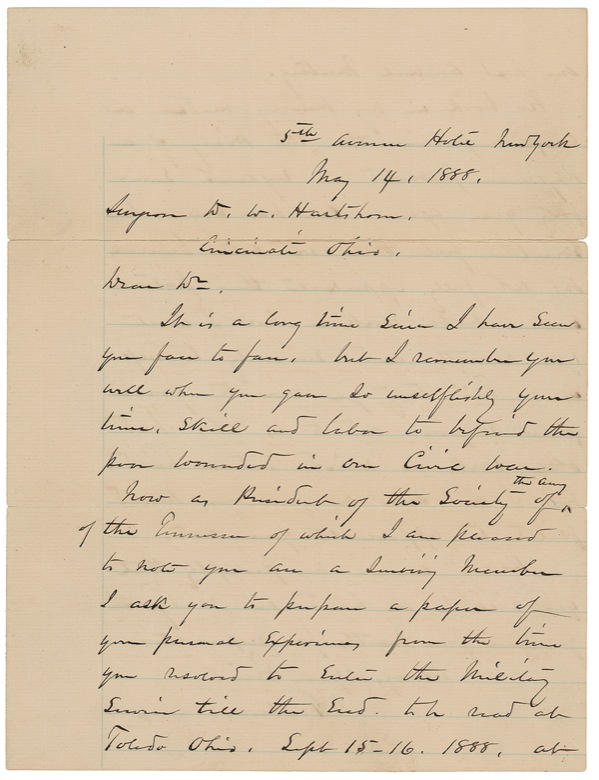 5th Avenue Hotel New York
May 14, 1888.
Surgeon D. W. Hartshorn.
Cincinnati Ohio.
Dear Dr.
It is a long time since I have seen
you face to face, but I remember you
well when you gave so unselfishly your
time, skill and labor to befriend the
poor wounded in our Civil War.
Now as President of the Society of ^ the Army
of the Tennessee of which I am pleased
to note you are a surviving Member
I ask you to prepare a paper of
your personal Experiences from the time
you resolved to Enter the Military
Service till the End. to be read at
Toledo Ohio, Sept 15-16. 1888, at